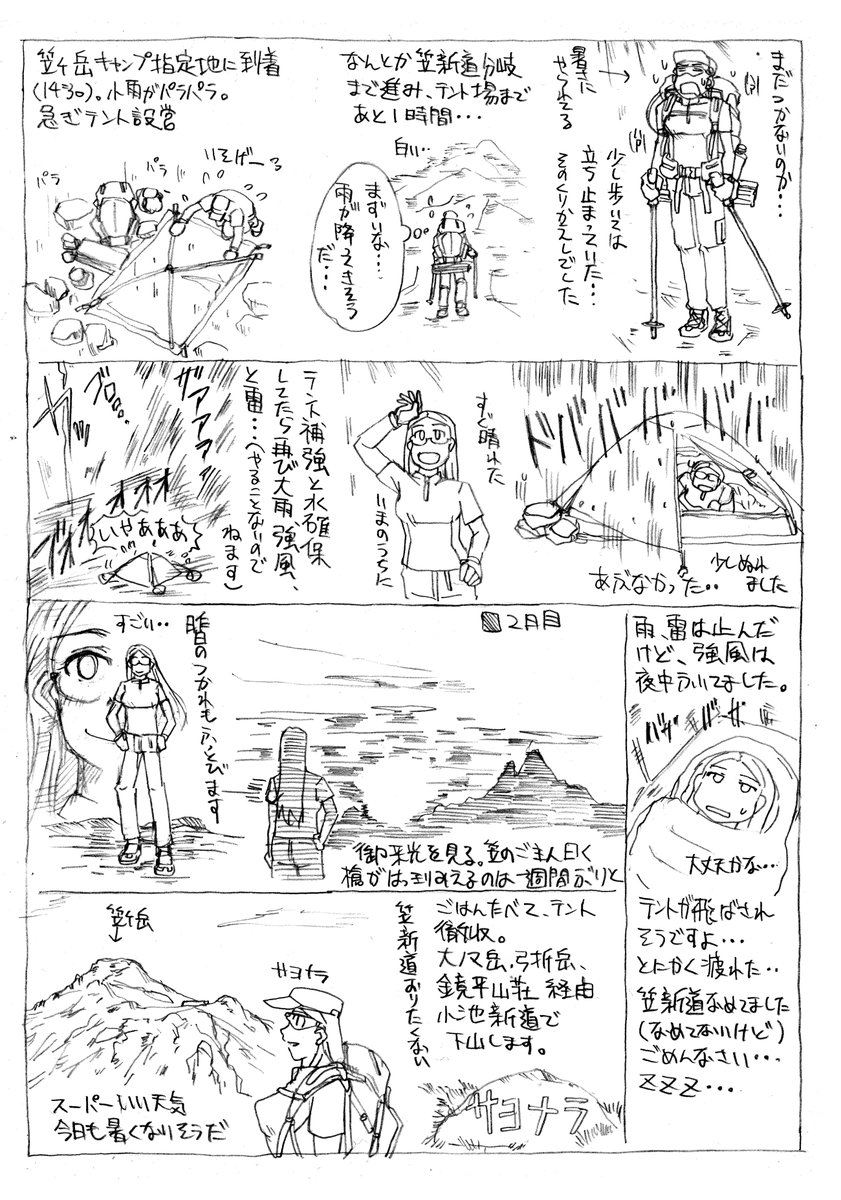 まだつかないのか・・・
暑さに
やられてる
少し歩いては
立ち止まっていた・・
そのくりかえしでした
なんとか笠新道分岐
まで進み、テント場まで
あと1時間・・・
白い・・
まずいな・・・
雨が降ってきそう
だ・・・
笠ヶ岳キャンプ指定地に到着
(14:30)。小雨がパラパラ。
急ぎテント設営
いそげーー
パラ
パラ
ドババババ
あぶなかった・・
少しぬれ
ました
すぐ晴れた
いまのうちに
テント補強と水確保
してたら再び大雨強風、
と雷・・・(やることないので
ねます)
ザアアアア
ゴロ・・・
ゴオオオオオ
いやあああ
雨、雷は止んだ
けど、強風は
夜中ふいてました。
バサ
バサ
大丈夫かな・・・
テントが飛ばされ
そうですよ・・・
とにかく疲れた・・
笠新道なめてました
(なめてないけど)
ごめんなさい・・・
ZZZ・・・
2日目
御来光を見る。笠のご主人曰く
槍がはっきりみえるのは一週間ぶりと
すごい・・
昨日のつかれもふっとびます
ごはんたべて、テント
撤収。
大ノマ岳、弓折岳、
鏡平山荘 経由
小池新道で
下山します。
笠新道おりたくない
サヨナラ
サヨナラ
笠ヶ岳
スーパーいい天気
今日も暑くなりそうだ